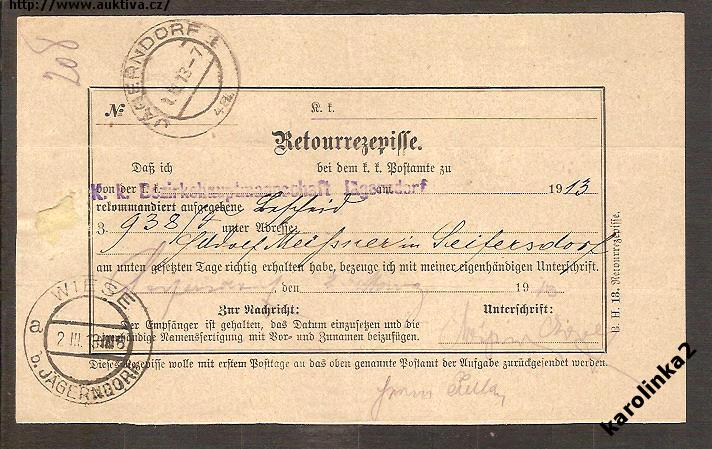 http://www.auktiva.cz/
208
JÄGERNDORF 1
13-7
№
K. k.
Retourrezepisse.
Daß ich bei dem k. k. Postamte zu
von der k. k.
K. k. Bezirkshauptmannschaft Jägerndorf
am 1913
rekommandiert aufgegebene Bescheid
3. 938/4 unter Adresse:
Adolf Meissner in Seifersdorf
am unten gesetzten Tage richtig erhalten habe, bezeuge ich mit meiner eigenhändigen Unterschrift.
den 19
Zur Nachricht: Unterschrift:
Der Empfänger ist gehalten, das Datum einzusetzen und die
eigenhändige Namensfertigung mit Vor- und Zunamen beizufügen.
Dieses Rezepisse wolle mit erstem Posttage an das oben genannte Postamt der Aufgabe zurückgesendet werden.
B. H. 13. Retourrezepisse.
WIESE
a
2 III 13
b. JÄGERNDORF
karolinka2